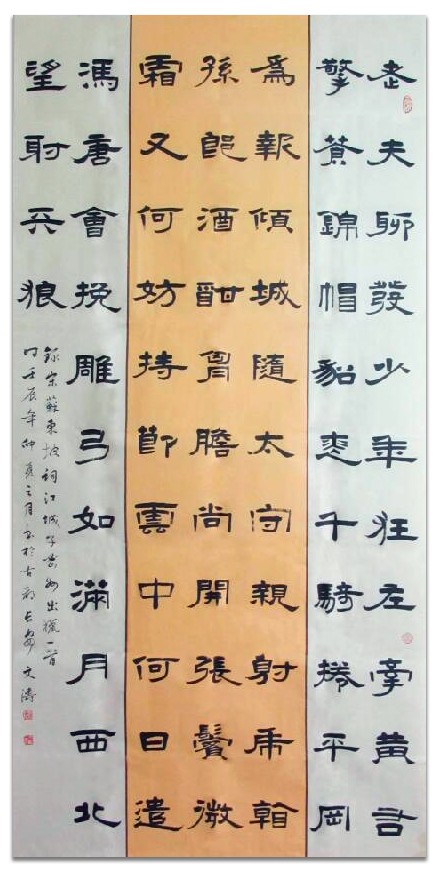 老夫聊發少年狂左牽黃右
擎蒼錦帽貂裘千騎捲平岡
爲報傾城隨太守親射虎看
孫郎酒酣胷膽尚開張鬢微
霜又何妨持節雲中何日遣
馮唐會挽雕弓如滿月西北
望射天狼
錄宋蘇東坡詞江城子密州出獵一首
時壬辰年仲夏之月書於古都長安文濤